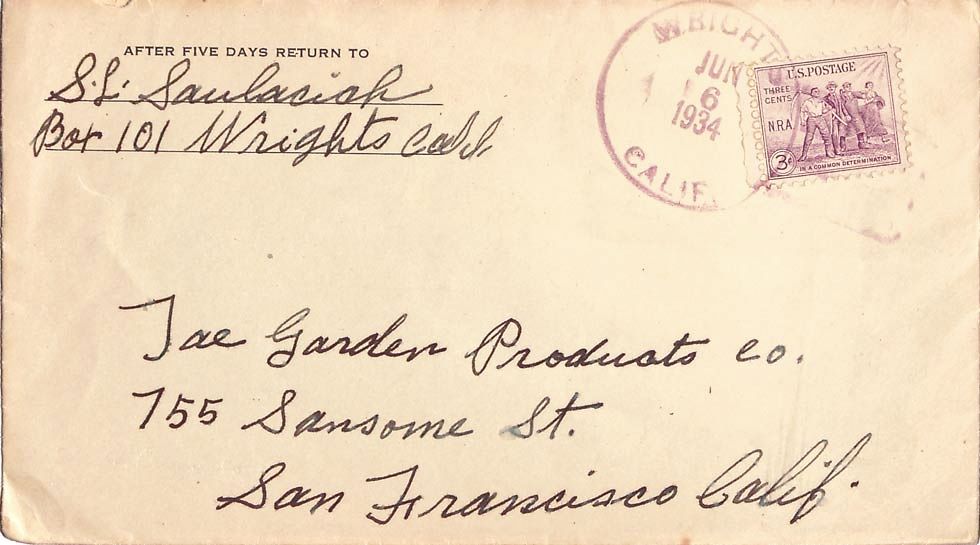 AFTER FIVE DAYS RETURN TO
S.L.
Box 101 Wrights Calif
WRIGHT
JUN
6
1934
CALIF.
U.S. POSTAGE
THREE
CENTS
N.R.A.
3¢
IN A COMMON DETERMINATION
Jae Garden Products Co.
755 Sansome St.
San Francisco Calif.